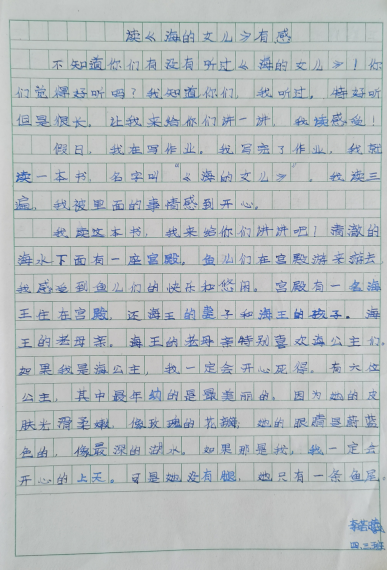 读《海的女儿》有感
不知道你们有没有听过《海的女儿》！你
们觉得好听吗？我知道你们，我听过。特好听
但是很长。让我来给你们讲一讲，我读感受！
假日，我在写作业。我写完了作业，我就
读一本书，名字叫"《海的女儿》"。我读三
遍，我被里面的事情感到开心。
我读这本书，我来给你们讲讲吧！清澈的
海水下面有一座宫殿。鱼儿们在宫殿游来游去，
我感受到鱼儿们的快乐和悠闲。宫殿有一名海
王住在宫殿，还海王的妻子和海王的孩子。海
王的老母亲。海王的老母亲特别喜欢海公主们。
如果我是海公主，我一定会开心死得。有六位
公主，其中最年幼的是最美丽的。因为她的皮
肤光滑柔嫩，像玫瑰的花瓣；她的眼睛是蔚蓝
色的，像最深的湖水。如果那是我，我一定会
开心的上天。可是她没有腿，她只有一条鱼尾。
四.三班